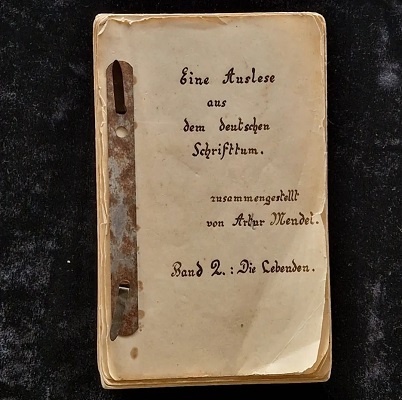 Eine Auslese
aus
dem deutschen
Schrifttum.
zusammengestellt
von Artur Mendel.
Band 2.: Die Lebenden.